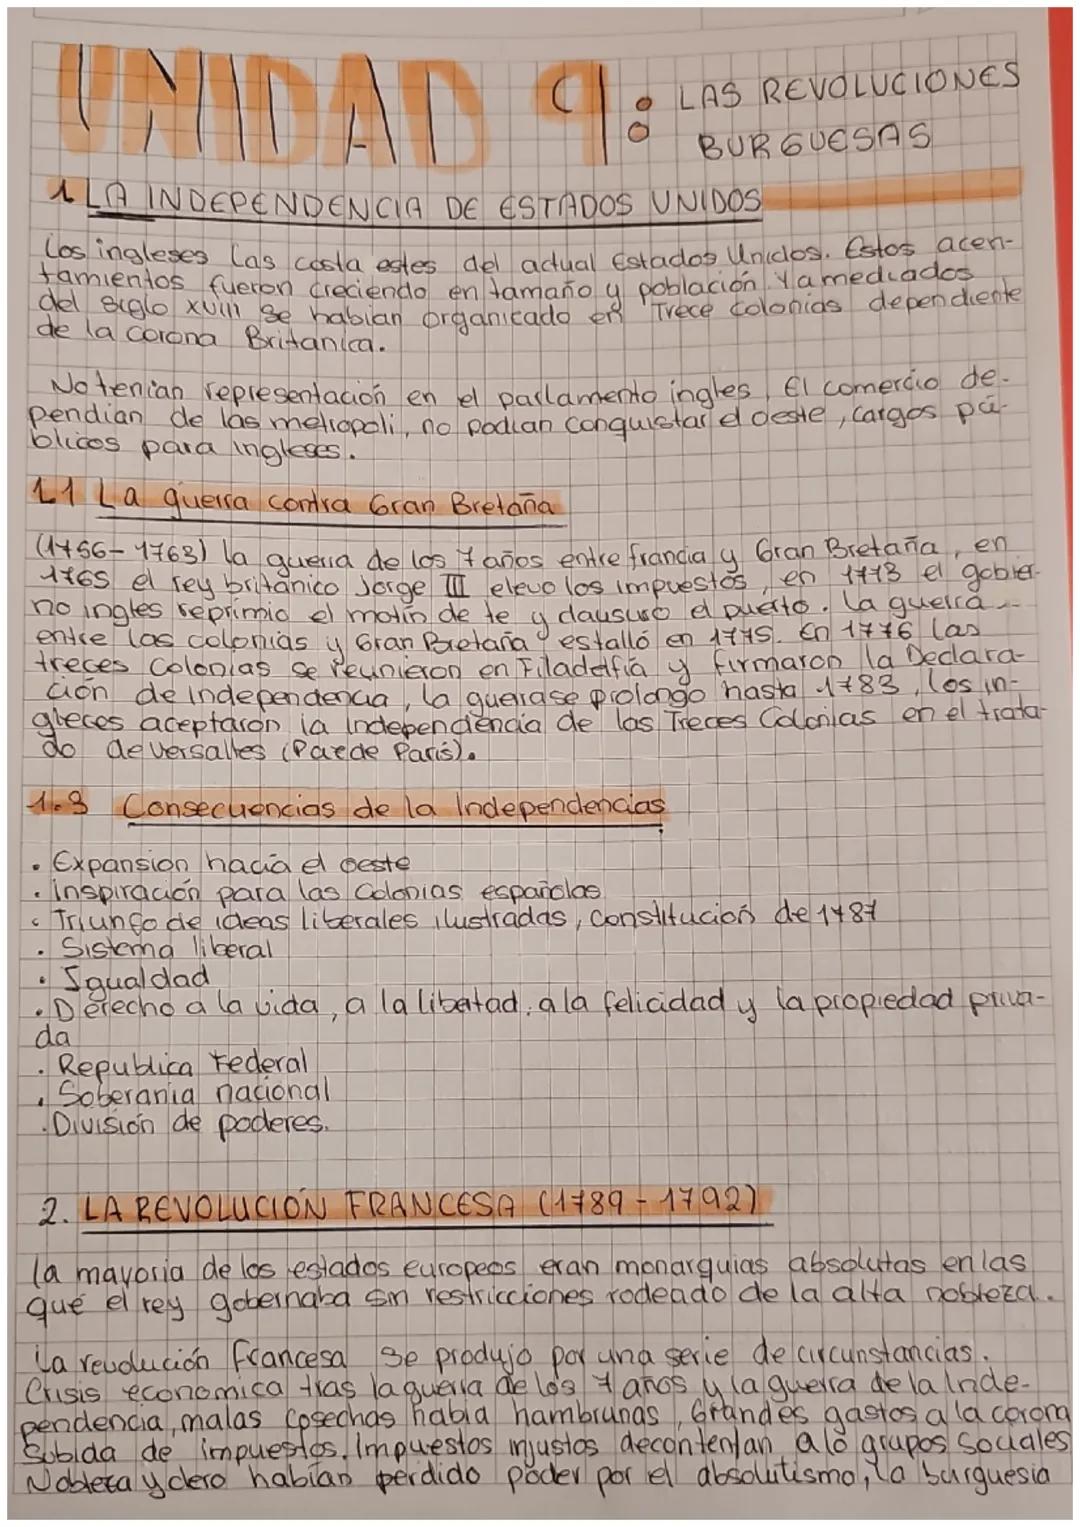 UNIDAD 9: LAS REVOLUCIONES
BURGUESAS
1 LA INDEPENDENCIA DE ESTADOS UNIDOS
Los ingleses las costa estes del actual Estados Unidos. Estos acen-
tamientos fueron creciendo en tamaño y población. Ya mediados
del siglo XVIII se habian organicado en Trece colonias dependiente
de la corona Britanica.
No tenian representación en el parlamento ingles, El comercio de-
pendian de las metropoli, no podian conquistar el oeste, cargos pú-
blicos para ingleses.
1.1 La guerra contra Gran Bretaña
(1756-1763) la guerra de los 7 años entre francia y Gran Bretaña, en
1765 el rey británico Jorge III elevo los impuestos, en 1773 el gobier-
no ingles reprimio el motín de te y clausuro el puerto. La guerra
entre las colonias y Gran Bretaña estalló en 1775. En 1776 las
treces colonias se reunieron en Filadelfia y firmaron la Declara-
ción de Independencia, la guerra se prolongo hasta 1783, los in-
gleces aceptaron la Independencia de las Treces Colonias en el trata-
do de versalles (Paz de Paris).
1.3 Consecuencias de la Independencias
• Expansion hacia el oeste
• inspiración para las Colonias españolas
• Triunfo de ideas liberales ilustradas, constitución de 1787
• Sistema liberal
• Igualdad
• Derecho a la vida, a la libertad, a la felicidad y la propiedad priva-
da
• Republica Federal
• Soberania nacional
• División de poderes.
2. LA REVOLUCIÓN FRANCESA (1789-1792)
la mayoria de los estados europeos eran monarquias absolutas en las
que el rey gobernaba sin restricciones rodeado de la alta nobleza.
La revolución francesa se produjo por una serie de circunstancias.
Crisis economica tras la guerra de los 7 años y la guerra de la Inde-
pendencia, malas cosechas habia hambrunas, Grandes gastos a la corona
Subida de impuestos. Impuestos injustos decontentan a lo grupos sociales
Nobleza y clero habían perdido poder por el absolutismo, la burguesia